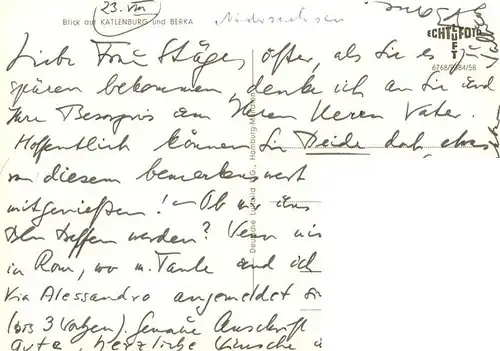 23. VIII
Blick auf KATLENBURG und BERKA
Niedersachsen
ECHTES FOTO
LUFT
6768/5584/58
Deutsche Luftbild K.G., Hamburg
Liebe Frau Stäger, öfter, als Sie es
spüren bekommen, denke ich an Sie und
Ihre Besorgnis um Ihren Herrn Vater.
Hoffentlich können Sie Beide doch etwas
von diesem bemerkenswert
mitgenießen! – Ob wir uns
treffen werden? Wenn
in Rom, wo m. Tante und ich
Via Alessandro angemeldet
(bis 3 Wochen). Genaue Anschrift
Gute, herzliche Wünsche